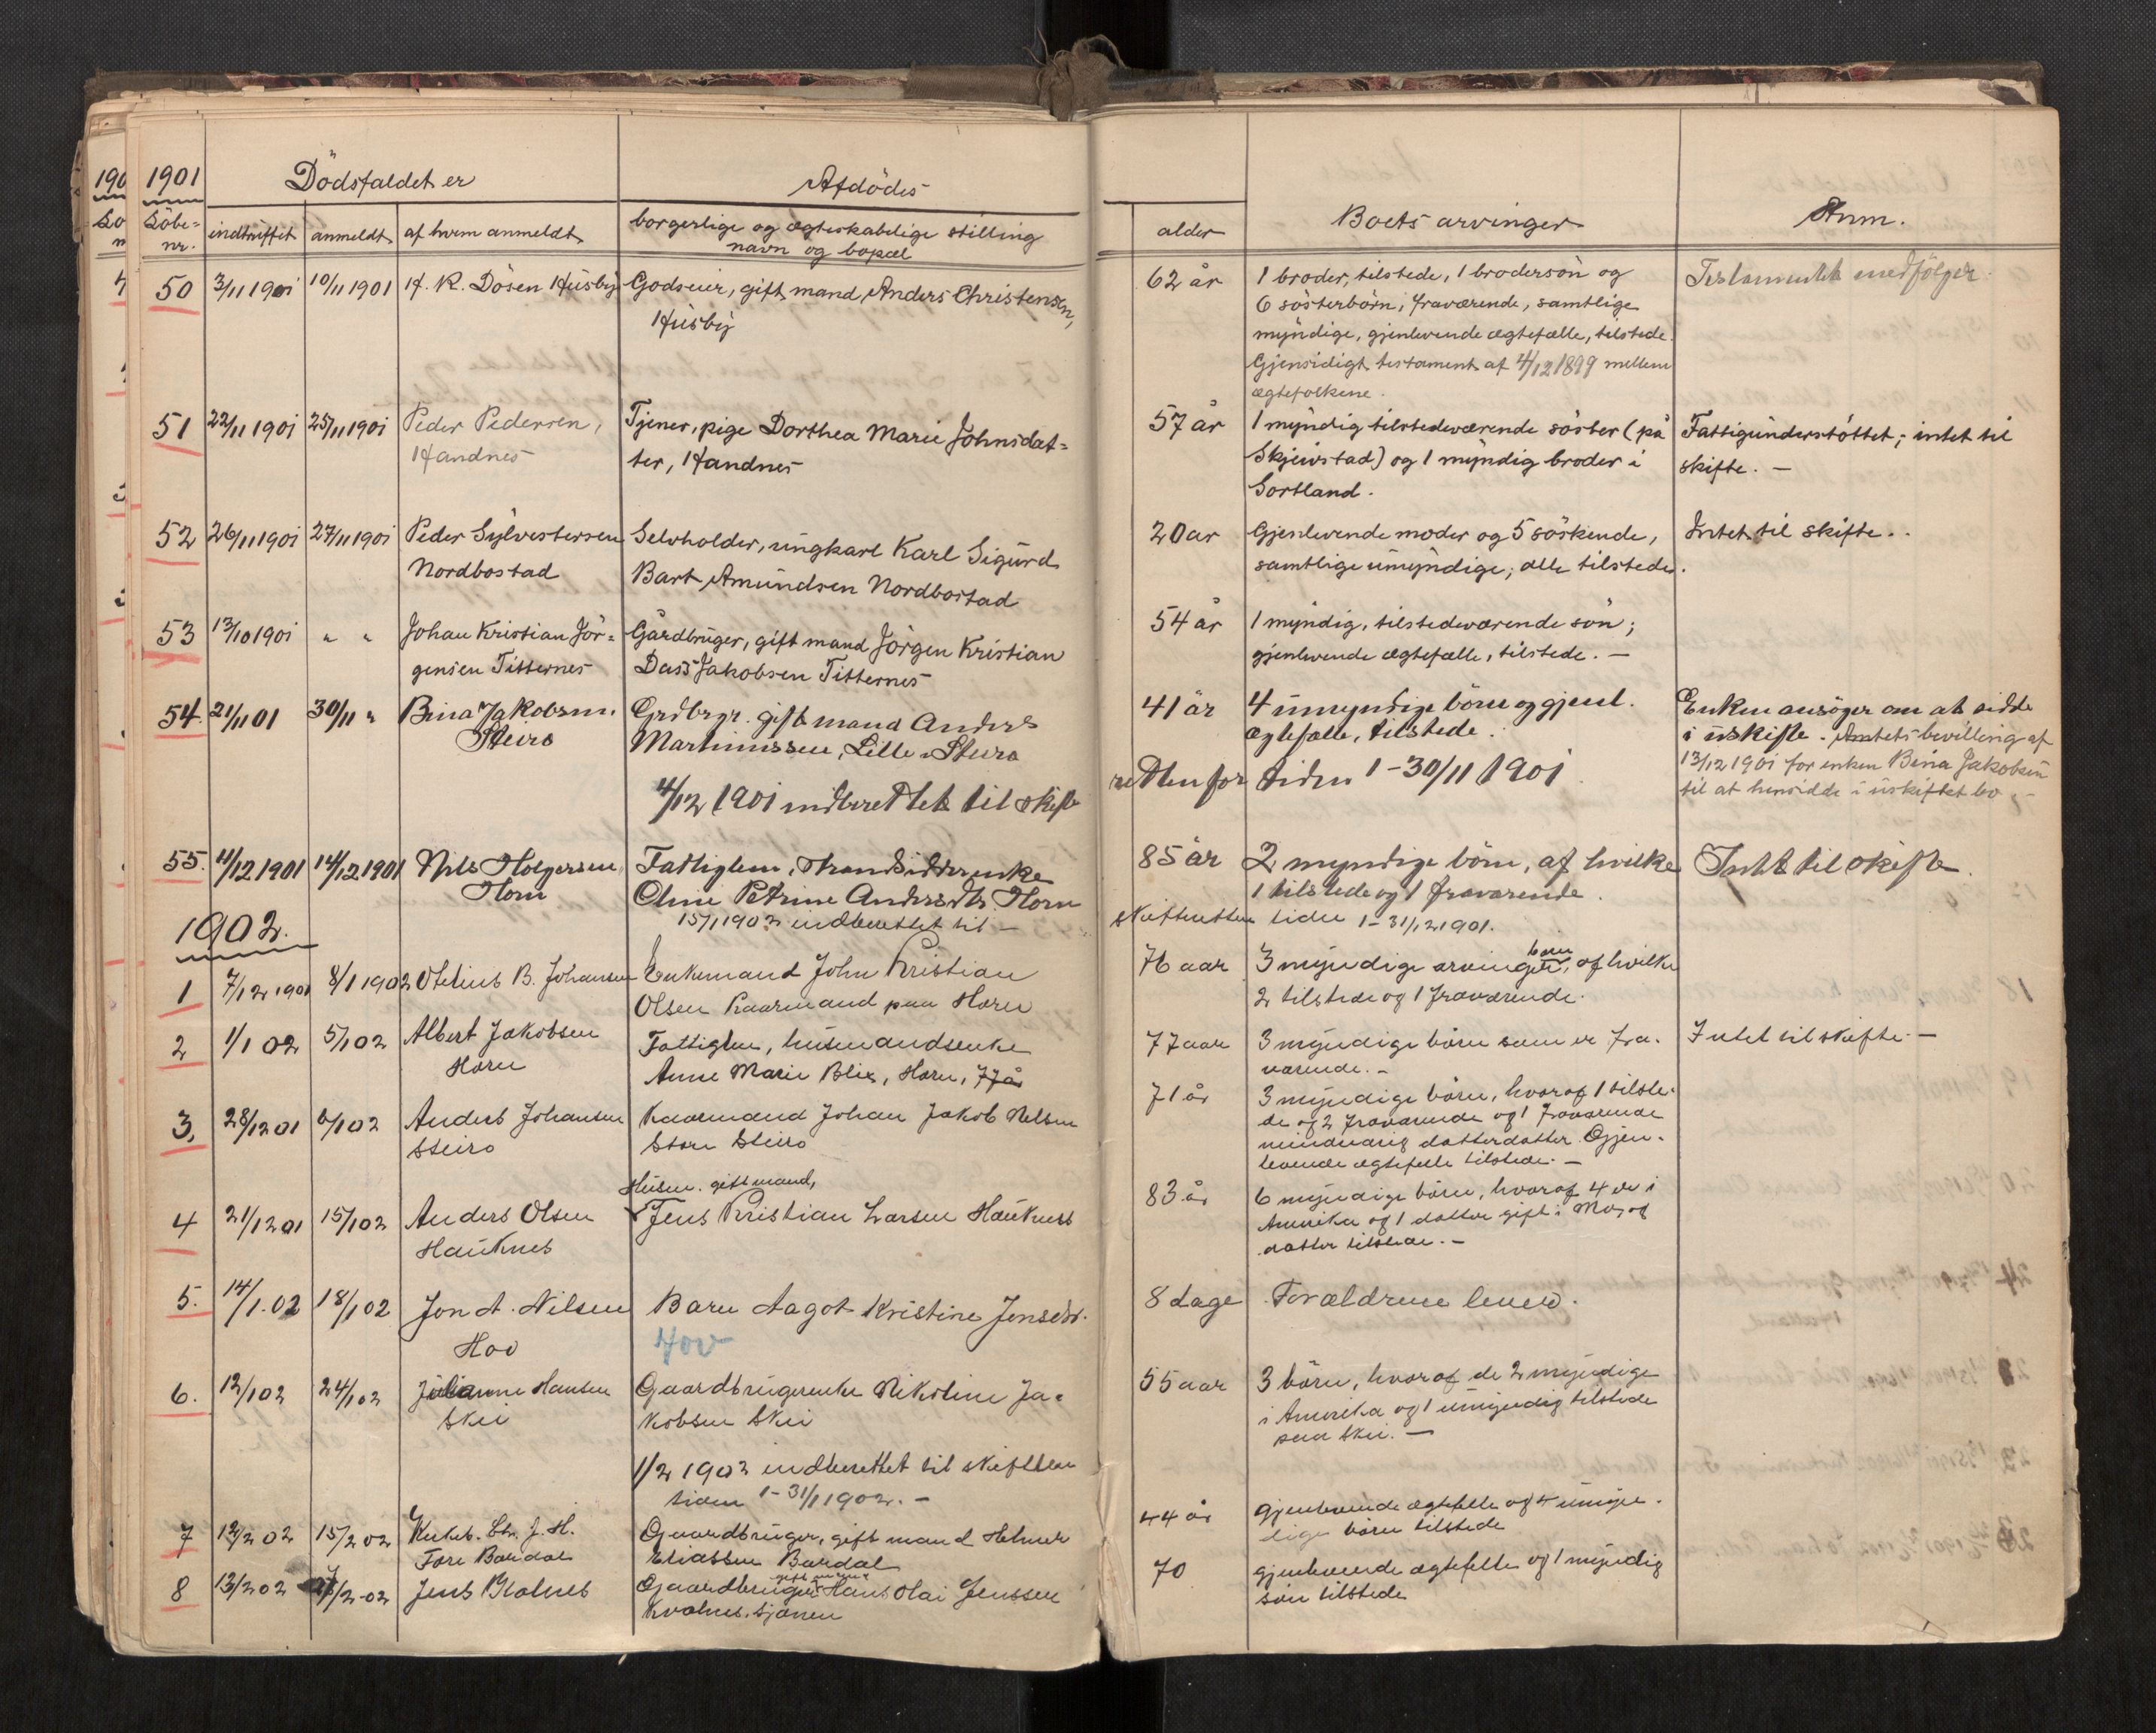 1901
Dödsfaldet er
Afdödes
Löbe=
nr.
indtruffet
anmeldt
af hvem anmeldt
borgerlige og ægteskabelige stilling
navn og bopæl
alder
Boets arvinger
Anm.
50 3/11 1901 10/11 1901 H. K. Dösen Husby Godseier, gift mand, Anders Christensen,
Husby
62 år 1 broder, tilstede, 1 brodersön og
6 sösterbörn, fraværende, samtlige
myndige, gjenlevende ægtefælle, tilstede.
Gjensidigt testament af 4/12 1899 mellem
ægtefolkene.
Testamentet medfölger.
51 22/11 1901 25/11 1901 Peder Pedersen, Tjener, pige Dorthea Marie Johnsdat=
Handnes ter, Handnes
57 år 1 myndig tilstedeværende söster (på Fattigunderstöttet; intet til
Skjeivstad) og 1 myndig broder i skifte. —
Sortland.
52 26/11 1901 27/11 1901 Peder Sylvestersen Selvholder, ungkarl Karl Sigurd
Nordbostad Bart Amundsen Nordbostad
20 ar Gjenlevende moder og 5 söskende, Intet til skifte..
samtlige umyndige, alle tilstede.
53 13/10 1901 " " Johan Kristian Jör= Gårdbruger, gift mand Jörgen Kristian
gensen Titternes Dass Jakobsen Titternes
54 år 1 myndig, tilstedeværende sön;
gjenlevende ægtefælle, tilstede. —
54. 21/11 01 30/11 " Bina Jakobsen. Grdbrgr. gift mand Anders
Steiro Martinussen, Lille Steiro
41 år 4 umyndige börn og gjenl. Enken ansöger om at sidde
ægtefælle, tilstede. i uskifte. Amtets bevilling af
13/12 1901 for enken Bina Jakobsen
til at hensidde i uskiftet bo. —
4/12 1901 indberettet til skifte
retten for tiden 1-30/11 1901
55. 11/12 1901 14/12 1901 Nils Holgersen Fattiglem, Strandsidderenke
Horn Oline Petrine Andersdtr Horn
85 år 2 myndige börn, af hvilke Intet til skifte.
1 tilstede og 1 fraværende.
1902.
15/1 1902 indberettet til —
skifteretten tiden 1-31/12 1901.
1 7/12 1901 8/1 1902 Otelius B. Johansen Enkemand John Kristian
Olsen Kaarmand paa Horn
76 aar 3 myndige arvinger, börn af hvilke
2 tilstede og 1 fraværende.
2 1/1 02 5/1 02 Albert Jakobsen Fattiglem, husmandsenke
Horn Anne Marie Blix, Horn, 77 år
77 aar 3 myndige börn som er fra- Intet til skifte. —
værende. —
3, 28/12 01 6/1 02 Anders Johansen Kaarmand Johan Jakob Nelsen
Steiro Store Steiro
71 år 3 myndige börn, hvoraf 1 tilste-
de og 2 fraværende og 1 fraværende
mindreårig datterdatter. Gjen-
levende ægtefælle tilstede. —
Husm. gift mand,
4 21/12 01 15/1 02 Anders Olsen Jens Kristian Larsen Hauknes
Hauknes
83 år 6 myndige börn, hvoraf 4 er i
Amerika og 1 datter gift i Mo, og
datter tilstede. —
5. 14/1.02 18/1 02 Jon A. Nilsen Barn Aagot Kristine Jensdtr.
Hov Hov
8 dage Forældrene lever.
6. 12/1 02 24/1 02 Julianne Hansen Gaardbrugerenke Nikoline Ja-
Skei kobsen Skei
55 aar 3 börn, hvoraf de 2 myndige
i Amerika og 1 umyndig tilstede
paa Skei. —
1/2 1902 indberettet til skifteretten
tiden 1-31/1 1902. —
7 12/2 02 15/2 02 J. H. Gaardbruger, gift mand Helmer
Fore Bardal Eliassen Bardal
44 år gjenlevende ægtefelle og 4 umyn-
dige börn tilstede
8 13/2 02 /2-02 Jens Kvalnes gift mand
Gaardbruger Hans Olai Jenssen
Kvalnes. Sjonen
70 gjenlevende ægtefelle og 1 myndig
sön tilstede